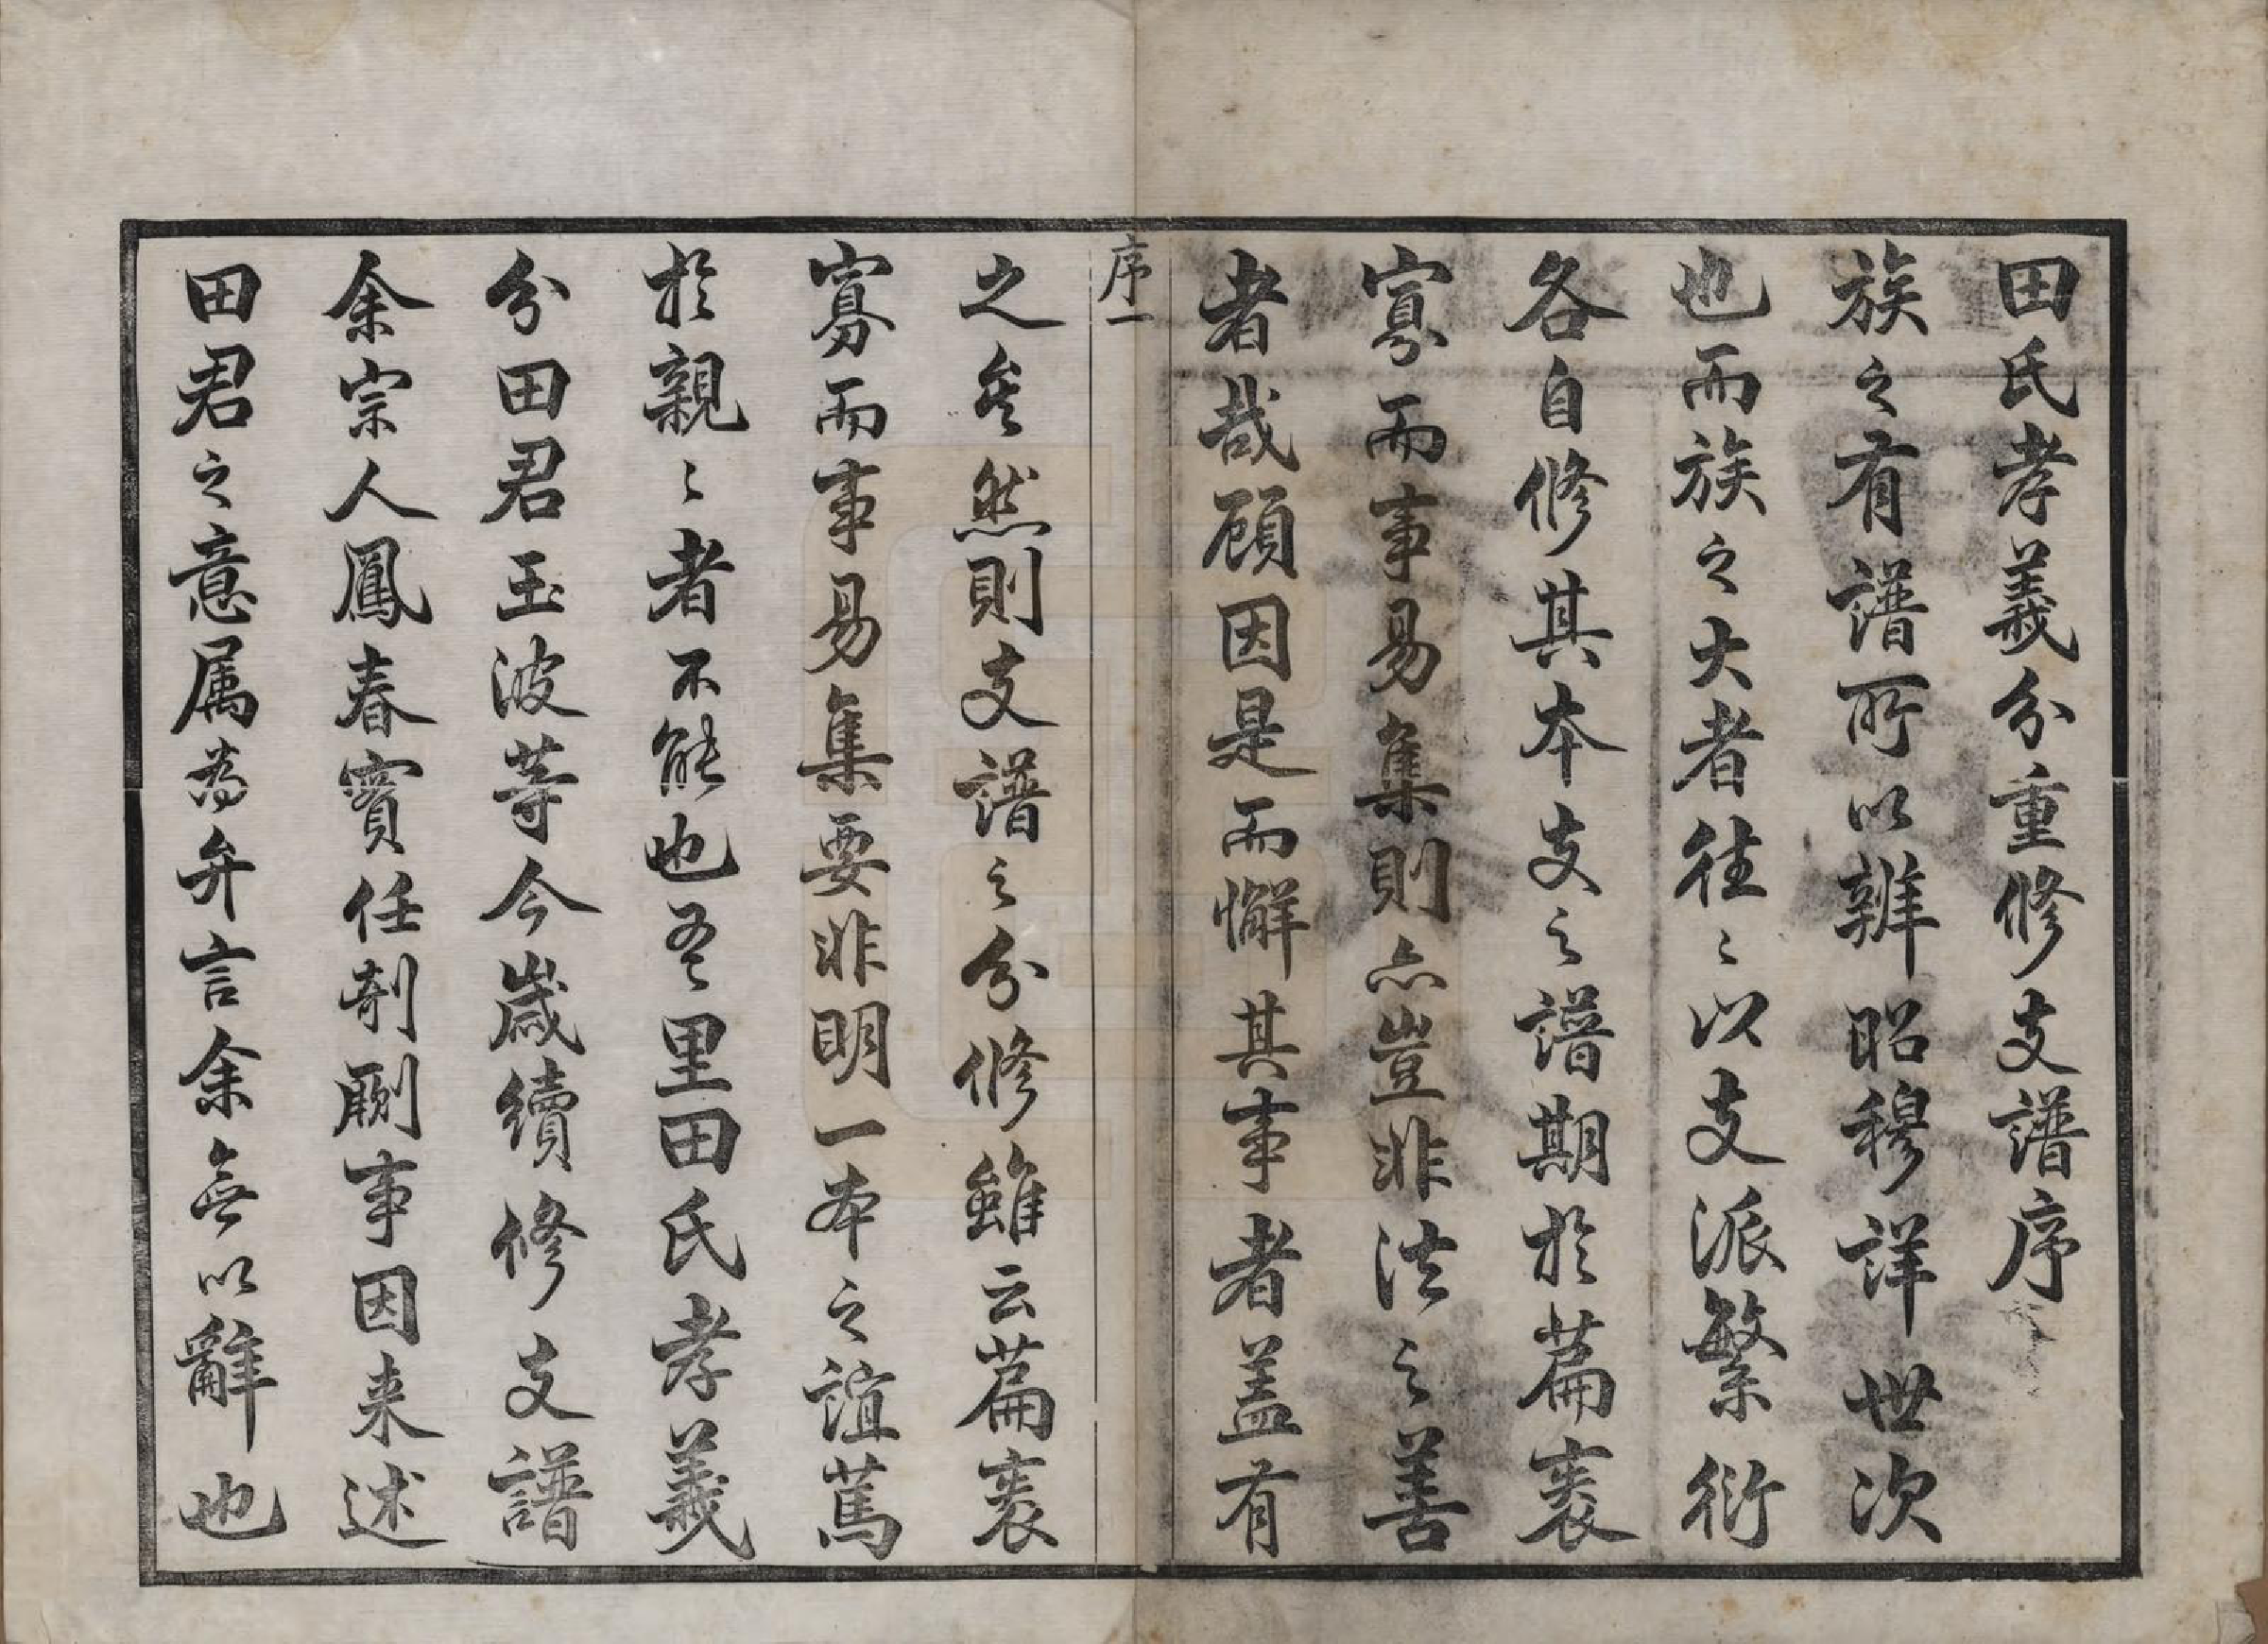 田氏孝義分重修支譜序
族之有譜所以辨昭穆詳世次
也而族之大者往〻以支派繁衍
各自修其本支之譜期於篇袠
寡而事易集則亦豈非法之善
者哉顧因是而懈其事者盖有
序一
之矣然則支譜之分修雖云篇袠
寡而事易集要非明一本之誼篤
於親〻者不能也吾里田氏孝義
分田君玉波等今歲續修支譜
余宗人鳳春實任剞劂事因来述
田君之意属為弁言余無以辭也